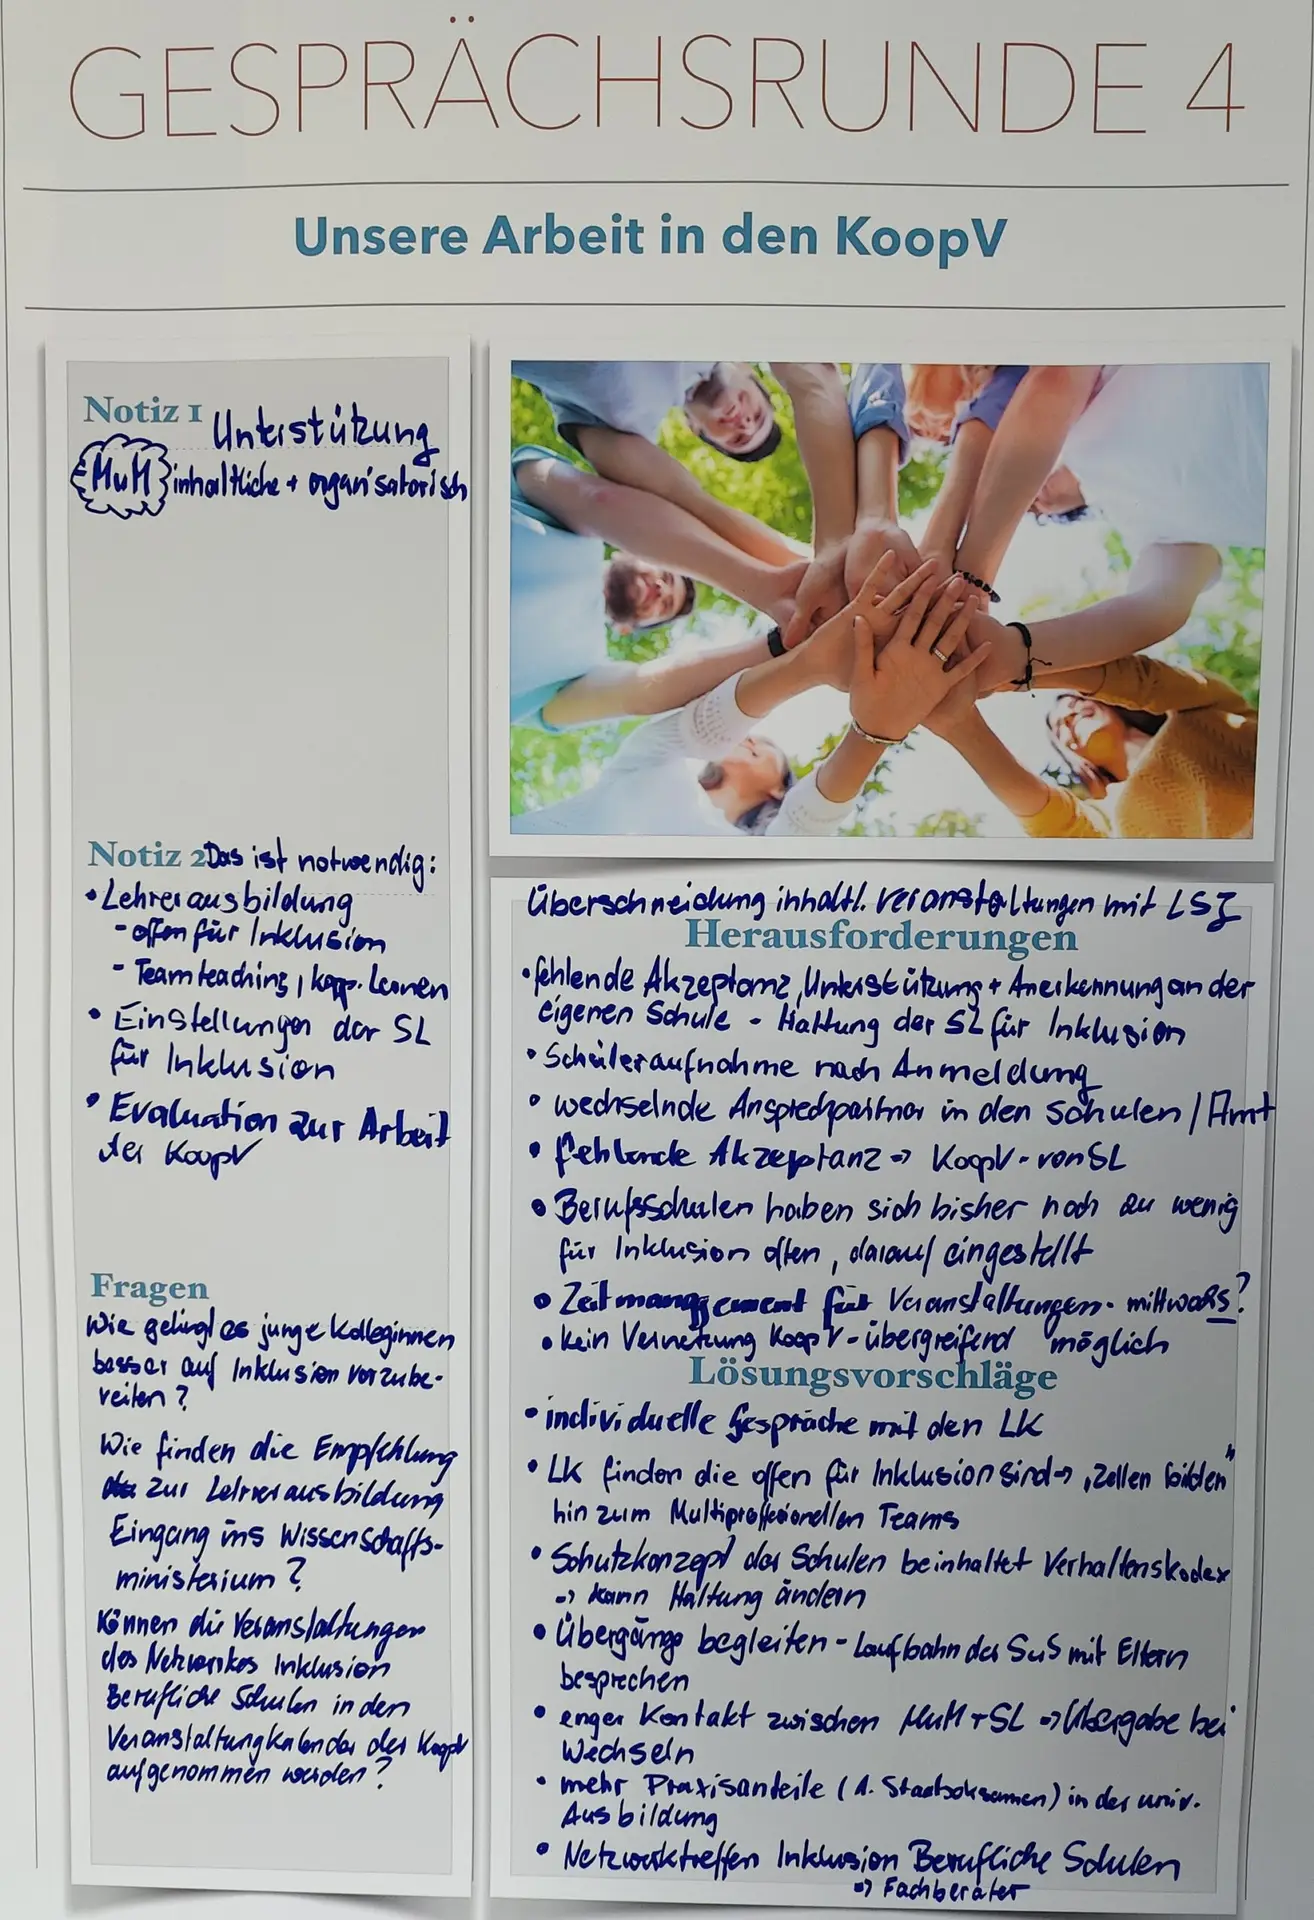 GESPRÄCHSRUNDE 4
Unsere Arbeit in den KoopV
Notiz 1 Unterstützung
MuM inhaltliche + organisatorisch
Notiz 2 Das ist notwendig:
• Lehrerausbildung
- offen für Inklusion
- Teamteaching, koop. Lernen
• Einstellungen der SL
für Inklusion
• Evaluation zur Arbeit
der KoopV
Fragen
Wie gelingt es junge Kolleginnen
besser auf Inklusion vorzube-
reiten?
Wie finden die Empfehlung
zur Lehrerausbildung
Eingang ins Wissenschafts-
ministerium?
Können die Veranstaltungen
des Netzwerkes Inklusion
Berufliche Schulen in den
Veranstaltungkalender der KoopV
aufgenommen werden?
Überschneidung inhaltl. Veranstaltungen mit LSJ
Herausforderungen
• fehlende Akzeptanz, Unterstützung + Anerkennung an der
eigenen Schule - Haltung der SL für Inklusion
• Schüleraufnahme nach Anmeldung
• wechselnde Ansprechpartner in den Schulen / Amt
• fehlende Akzeptanz => KoopV - von SL
• Berufsschulen haben sich bisher noch zu wenig
für Inklusion offen, darauf eingestellt
• Zeitmanagement für Veranstaltungen - mittwochs?
• kein Vernetzung KoopV - übergreifend möglich
Lösungsvorschläge
• individuelle Gespräche mit den LK
• LK finden die offen für Inklusion sind => „Zellen bilden"
hin zum Multiprofessionellen Teams
• Schutzkonzept der Schulen beinhaltet Verhaltenskodex
=> kann Haltung ändern
• Übergänge begleiten - Laufbahn der SuS mit Eltern
besprechen
• enger Kontakt zwischen MuM + SL => Übergabe bei
Wechseln
• mehr Praxisanteile (1. Staatsexamen) in der univ.
Ausbildung
• Netzwerktreffen Inklusion Berufliche Schulen
=> Fachberater